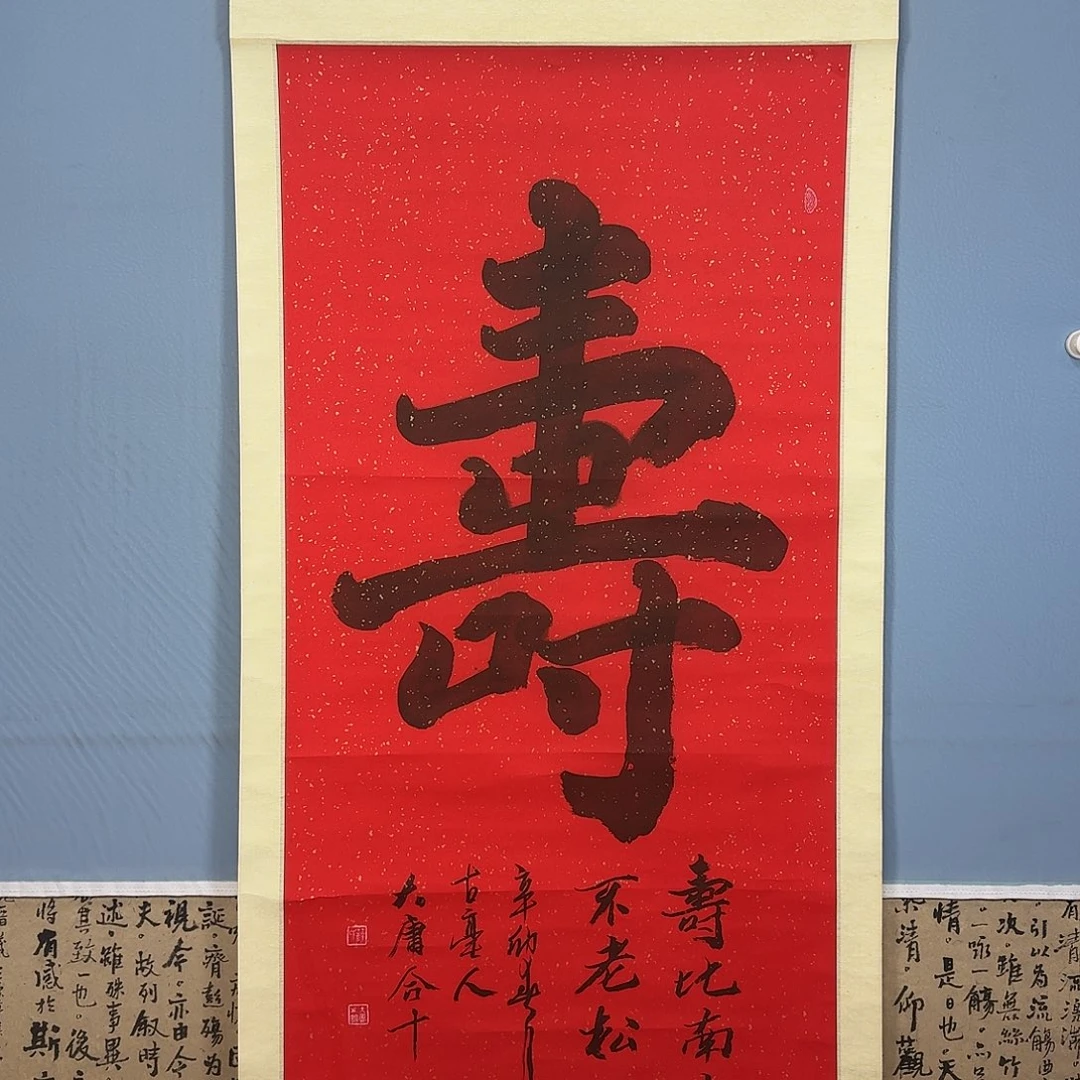 壽
壽比南
不老松
辛卯春
古亳人
大庸合十
有清流激湍
引以為流觴曲
次。雖無絲竹
一詠一觴。亦
情。是日也。天
清。仰觀
誕齊彭殤為
視今。亦由今
夫。故列叙時
述。雖殊事異
其致一也。後
將有感於斯